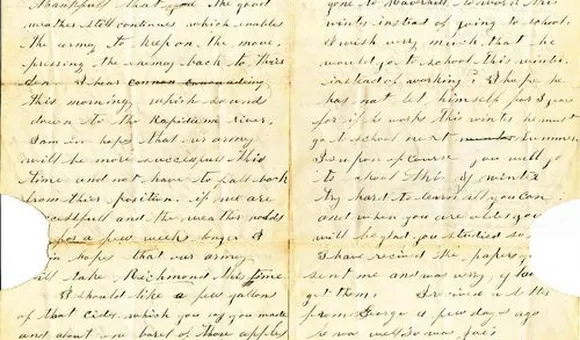 thankfull that the good
weather still continues which enables
the army to keep on the move,
pressing the enemy back to their
den. I hear cannonading
this morning which sounds
down to the Rapidann River,
I am in hopes that our army
will be more successfull this
time and not have to fall back
from this position. if we are
cessfull and the weather holds
for a few week longer I
in hopes that our army
will take Richmond this time.
I should like a few gallons
of that cider which you say you made
and about one barel of those apples
gone to Haverhill to work this
winter instead of going to school.
I wish very much that he
would go to school this winter,
instead of working; I hope he
has not let himself for 3 years
for if he works this winter he must
go to school next summer.
I supose of course you will go
to school this winter
try hard to learn all you can
and when you are older you
will be glad you studied so
I have recived the papers you
sent me and was very glad
get them. I recived a letter
from George a few days ago
he was well so was